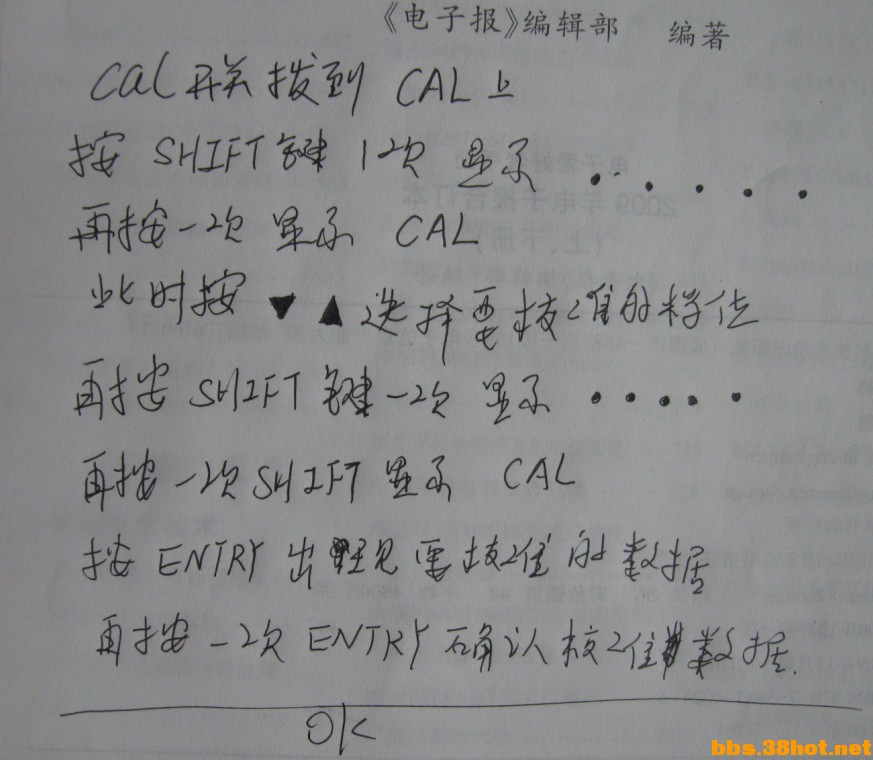 《电子报》编辑部 编著
CAL 开关拨到 CAL 上
按 SHIFT 键 1次 显示 . . . . . .
再按一次 显示 CAL
此时按 ▼ ▲ 选择要校准的档位
再按 SHIFT 键一次 显示 . . . . .
再按一次 SHIFT 显示 CAL
按 ENTRY 出现见要校准的数据
再按一次 ENTRY 确认校准数据.
OK
2009 年电子报合订本
(上、下册)
bbs.38hot.net